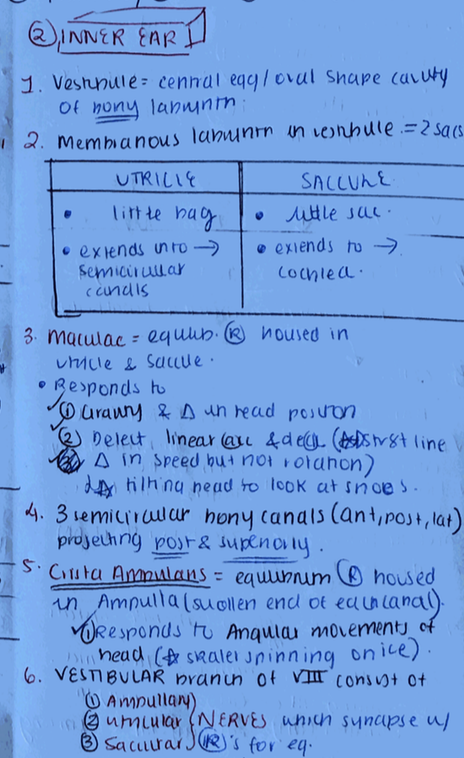 ② INNER EAR
1. Vestibule = central egg/oval shape cavity
of bony labyrinth.
2. Membranous labyrinth in vestibule = 2 sacs
UTRICLE SACCULE
• little bag • little sac.
• extends into → • extends to →
semicircular cochlea.
canals
3. Maculae = equilib. Ⓡ housed in
utricle & saccule.
• Responds to
① Gravity & Δ in head position
② Detect linear acc & decel ( strst line
Δ in speed but not rotation)
tilting head to look at shoes.
4. 3 semicircular bony canals (ant, post, lat)
projecting post & superiorly.
5. Crista Ampularis = equilibrium Ⓡ housed
in Ampulla (swollen end of each canal).
① Responds to Angular movements of
head ( skater spinning on ice).
6. VESTIBULAR branch of VIII consist of
① Ampullary
② utricular } NERVES which synapse w/
③ Saccular Ⓡ's for eq.